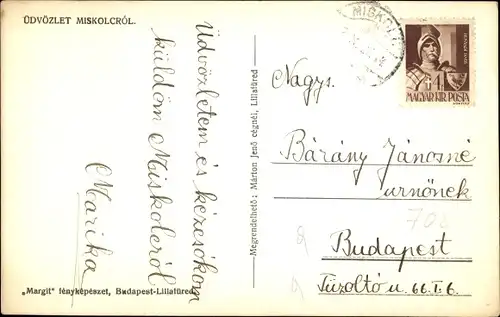 ÜDVÖZLET MISKOLCRÓL.
Üdvözletem és kézcsókom
küldöm Miskolcról
Marika
„Margit" fényképészet, Budapest-Lillafüred.
Megrendelhető: Márton Jenő cégnél, Lillafüred
MISKOL
MAGYAR KIR. POSTA
Nagys.
Bárány Jánosné
urnőnek
708
Budapest
Tűzoltó u. 66. I. 6.